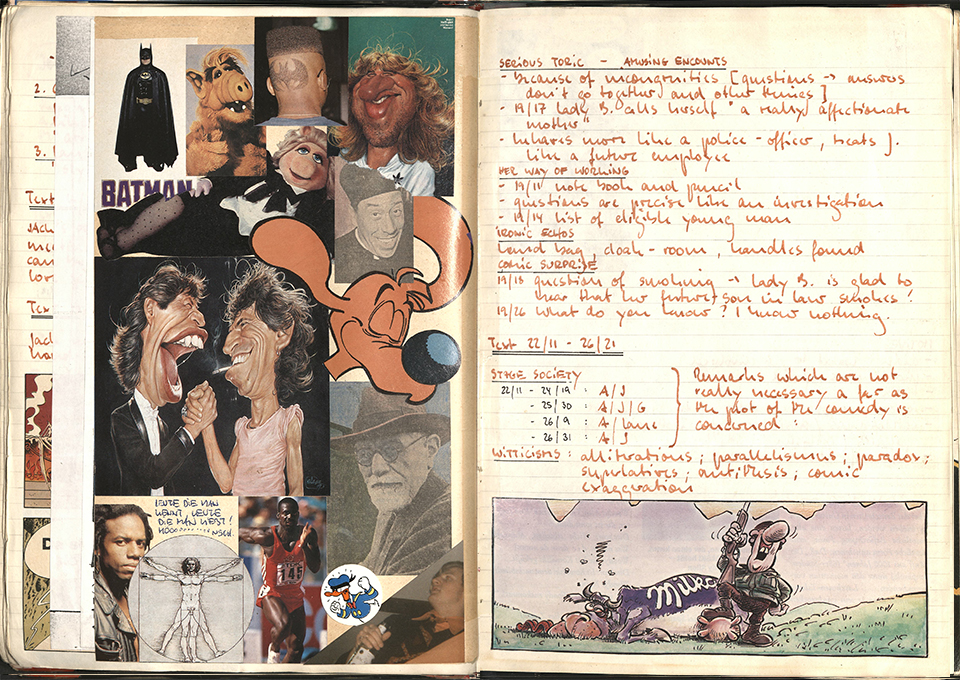 2.
3.
Text
Jack
Text
Jack
BATMAN
LEUTE DIE MAN
KENNT, LEUTE
DIE MAN LIEST!
145
SERIOUS TOPIC - AMUSING ENCOUNTS
- because of incongruities [questions → answers
don't go together and other things]
- 19/17 lady B. calls herself "a really affectionate
mother"
- behaves more like a police-officer, treats J.
like a future employee
HER WAY OF WORKING
- 19/11 note book and pencil
- questions are precise like an investigation
- 19/14 list of eligible young man
IRONIC ECHOS
hand bag, cloak-room, handles found
COMIC SURPRISE
19/18 question of smoking → lady B. is glad to
hear that her future son in law smokes!
19/26 What do you know? I know nothing.
Text 22/11 - 26/21
STAGE SOCIETY
22/11 - 24/19 : A/J
- 25/30 : A/J/G
- 26/9 : A/Lane
- 26/31 : A/J
Remarks which are not
really necessary a far as
the plot of the comedy is
concerned
WITTICISMS : alliterations; parallelismus; paradox;
superlatives; antithesis; comic
exaggeration
Milka